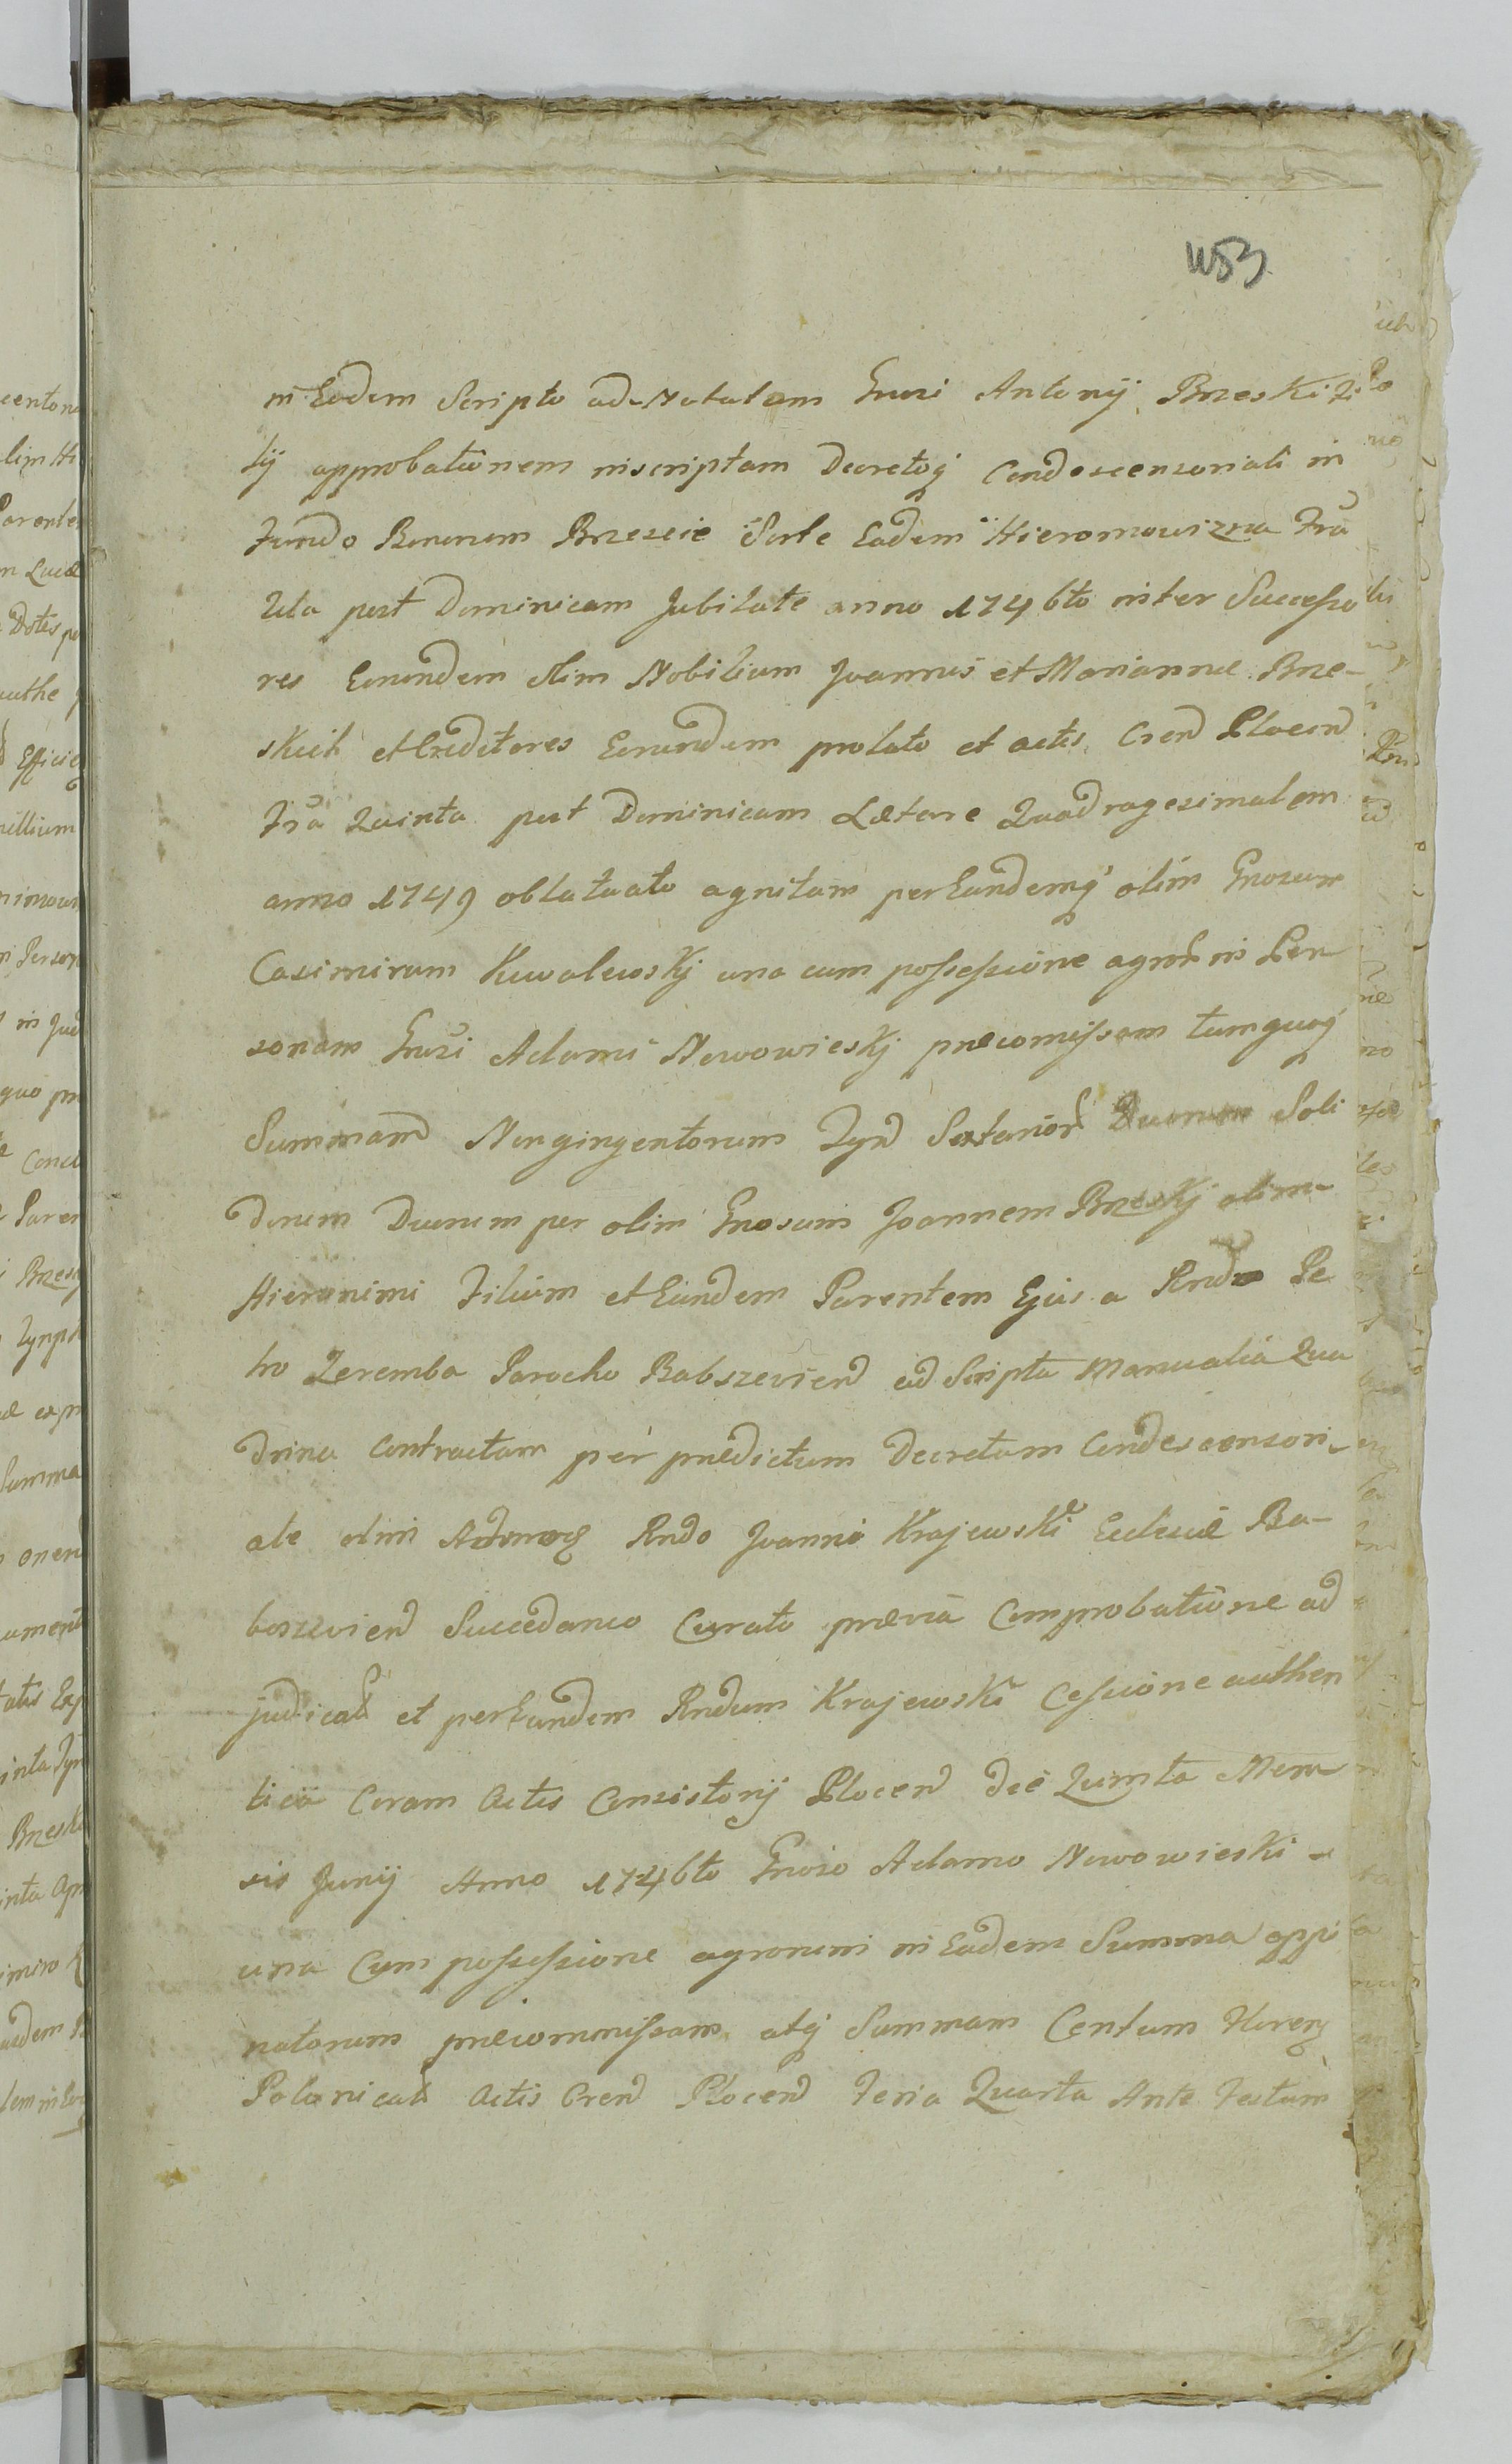 1153
in Eodem Scripto adnotatam Gnrsi Antonij Brzeski Fi
lij approbationem inscriptam Decretoq Condescensoriali in
Fundo Bonorum Brzescie Sorte Eadem Hieromowizna Fra
2da post Dominicam Jubilate anno 1746to inter Successo
res Eorundem olim Nobilium Joannis et Mariannæ Brze-
skich et Creditores Eorundem prolato et actis Cren Plocen
Fra Quinta post Dominicam Lætare Quadragesimalem
anno 1749 oblatuato agnitam per Eundemq olim Gnosum
Casimirum Kuwalewskj una cum possessione agror in Per
sonam Gnrsi Adami Nowowieskj præcomissam tumquoq
Summam Nongingentorum Tynf Sextarior Duorum Soli
dorum Duorum per olim Gnosum Joannem Brzeskj olim
Hieronimi Filium et Eundem Parentem Ejus a Rndo Pe
tro Zeremba Parocho Babszevien ad Scripta Manualia Qua
drina Contractam per prædictum Decretum Condescensori
ale olim Rndo Joanni Krajewski Ecclesiæ Ba-
boszevien Succedaneo Curato prævia Comprobatione ad
judicat et per Eundem Rndum Krajewski Cessione authen
tica Coram Actis Consistorij Plocen die Quinta Men
sis Junij Anno 1746to Gnoso Adamo Nowowieski
una Cum possessione agrorum in Eadem Summa oppi
natorum præcommissam atq Summam Centum Floren
Polonical Actis Cren Plocen Feria Quarta Ante Festum